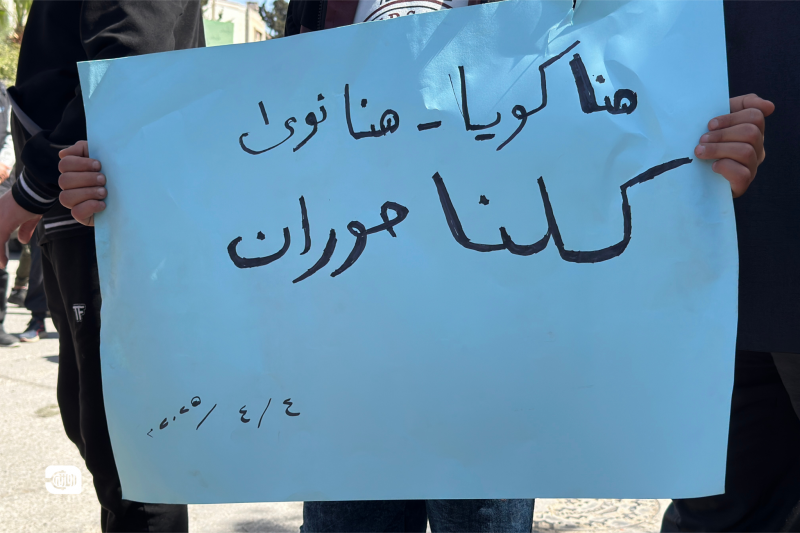 هنا كويا - هنا نوى
كلنا حوران
٤/٤/٢٠٢٥
TF